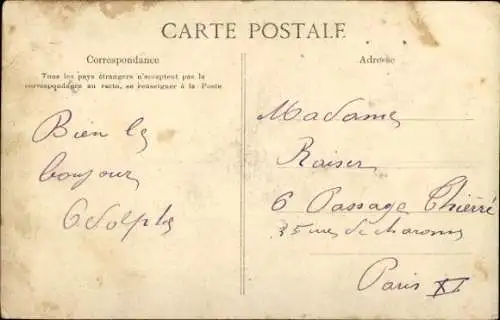 CARTE POSTALE
Correspondance
Tous les pays étrangers n'acceptent pas la
correspondance au recto, se renseigner à la Poste
Bien le
bonjour
Adolphe
Adresse
Madame
Raiser
6 Passage Thierré
rue de charonne
Paris XI